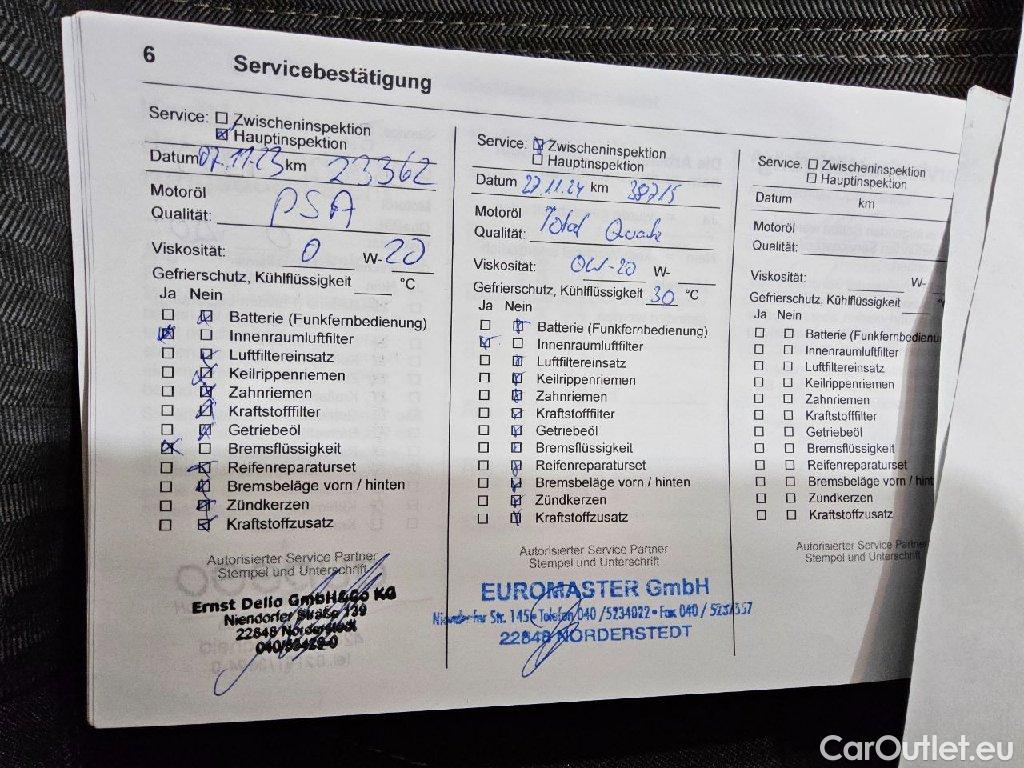 6 Servicebestätigung
Service: Zwischeninspektion
Hauptinspektion
Datum 07.11.23 km 23362
Motoröl
Qualität: PSA
Viskosität: 0 W-20
Gefrierschutz, Kühlflüssigkeit °C
Ja Nein
Batterie (Funkfernbedienung)
Innenraumluftfilter
Luftfiltereinsatz
Keilrippenriemen
Zahnriemen
Kraftstofffilter
Getriebeöl
Bremsflüssigkeit
Reifenreparaturset
Bremsbeläge vorn / hinten
Zündkerzen
Kraftstoffzusatz
Autorisierter Service Partner
Stempel und Unterschrift
Ernst Dello GmbH&Co KG
Niendorfer Straße 139
22848 Norderstedt
Service: Zwischeninspektion
Hauptinspektion
Datum 27.11.24 km 38715
Motoröl
Qualität: Total
Viskosität: 0W-20 W-
Gefrierschutz, Kühlflüssigkeit 30 °C
Ja Nein
Batterie (Funkfernbedienung)
Innenraumluftfilter
Luftfiltereinsatz
Keilrippenriemen
Zahnriemen
Kraftstofffilter
Getriebeöl
Bremsflüssigkeit
Reifenreparaturset
Bremsbeläge vorn / hinten
Zündkerzen
Kraftstoffzusatz
Autorisierter Service Partner
Stempel und Unterschrift
EUROMASTER GmbH
Niendorfer Str. 145 • Telefon 040 / 5234022 • Fax 040 /
22848 NORDERSTEDT
Service: Zwischeninspektion
Hauptinspektion
Datum km
Motoröl
Qualität:
Viskosität: W-
Gefrierschutz, Kühlflüssigkeit
Ja Nein
Batterie (Funkfernbedienu
Innenraumluftfilter
Luftfiltereinsatz
Keilrippenriemen
Zahnriemen
Kraftstofffilter
Getriebeöl
Bremsflüssigkeit
Reifenreparaturset
Bremsbeläge vorn / hint
Zündkerzen
Kraftstoffzusatz
Autorisierter Service Par
Stempel und Unterschrift
CarOutlet.eu